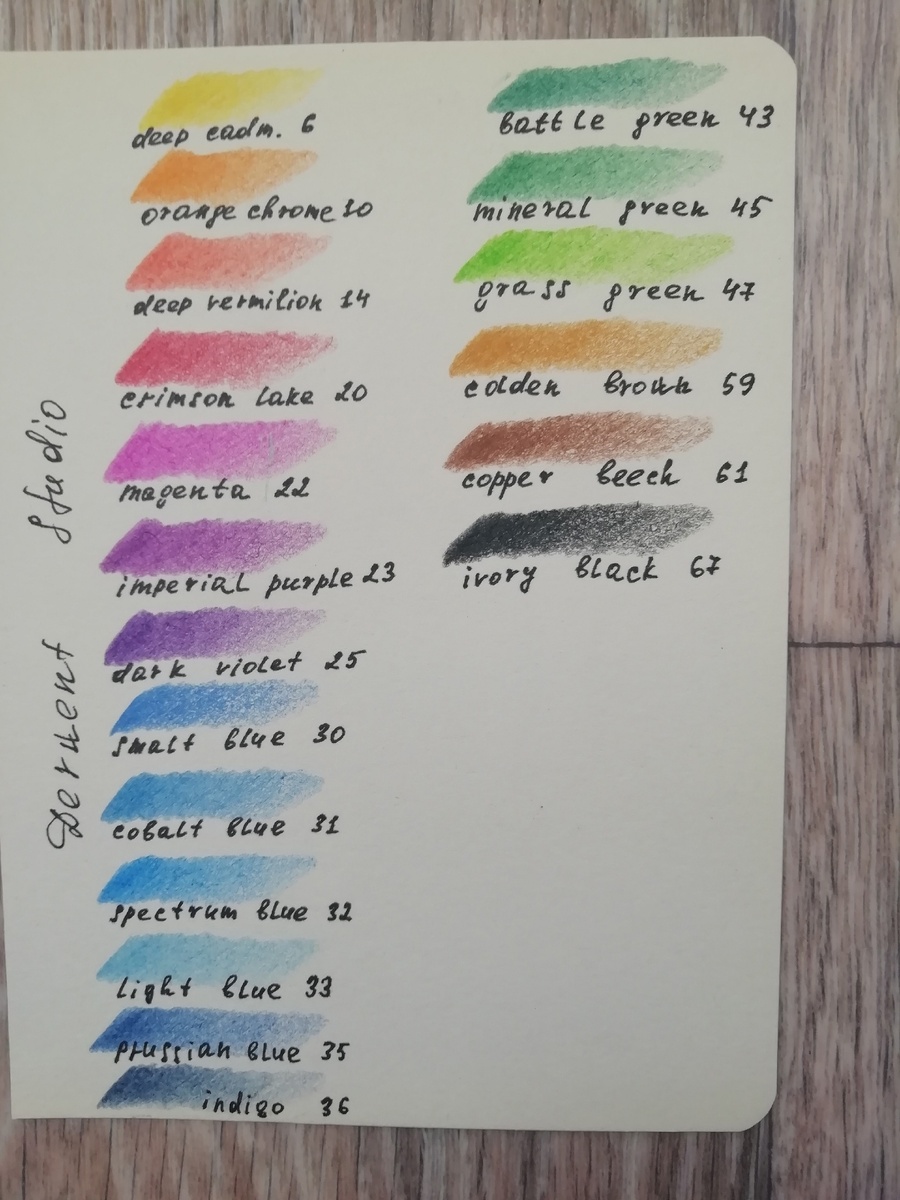 Derwent Studio
deep cadm. 6
orange chrome 10
deep vermilion 14
crimson lake 20
magenta 22
imperial purple 23
dark violet 25
smalt blue 30
cobalt blue 31
spectrum blue 32
light blue 33
prussian blue 35
indigo 36
battle green 43
mineral green 45
grass green 47
colden brown 59
copper beech 61
ivory black 67